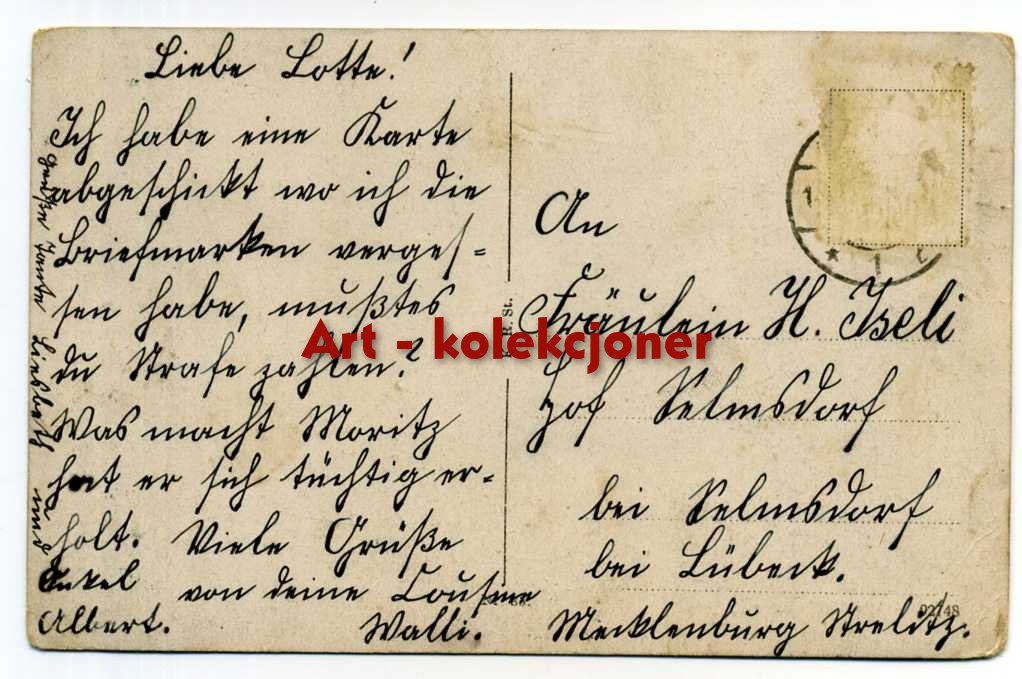 Liebe Lotte!
Ich habe eine Karte
abgeschickt wo ich die
Briefmarken verges-
sen habe, mußtes
du Strafe zahlen?
Was macht Moritz
hat er sich tüchtig er-
holt. Viele Grüße
von deine Cousine
Walli.
Grüße Tante Liesbeth
und
Onkel
Albert.
An
Fräulein H. Iseli
Hof Selmsdorf
bei Selmsdorf
bei Lübeck.
Mecklenburg Strelitz.
Art - kolekcjoner